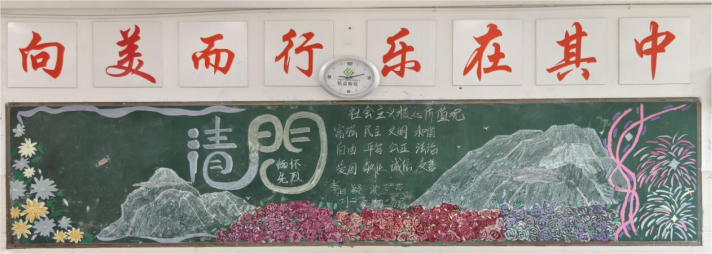 向美而行乐在其中
清明
缅怀
先烈
社会主义核心价值观
富强 民主 文明 和谐
自由 平等 公正 法治
爱国 敬业 诚信 友善